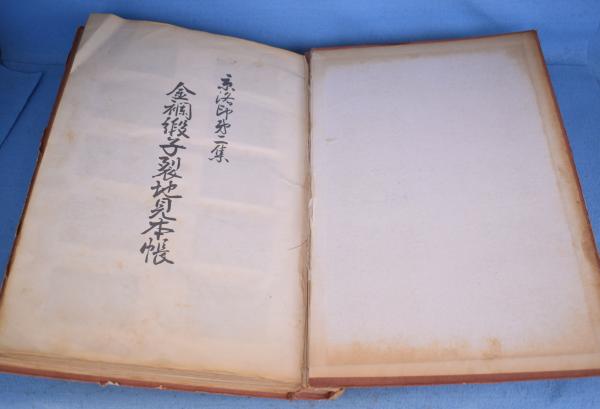 京洛印第二集
金襴緞子裂地見本帳